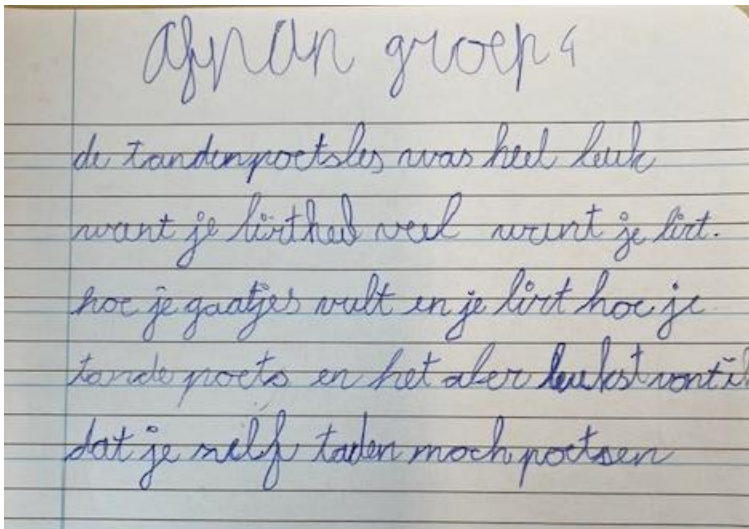 afnan groep 4
de tandenpoetsles was heel leuk
want je lirt heel veel want je lirt.
hoe je gaatjes vult en je lirt hoe je
tande poets en het aler leukst vont ik
dat je zelf taden moch poetsen